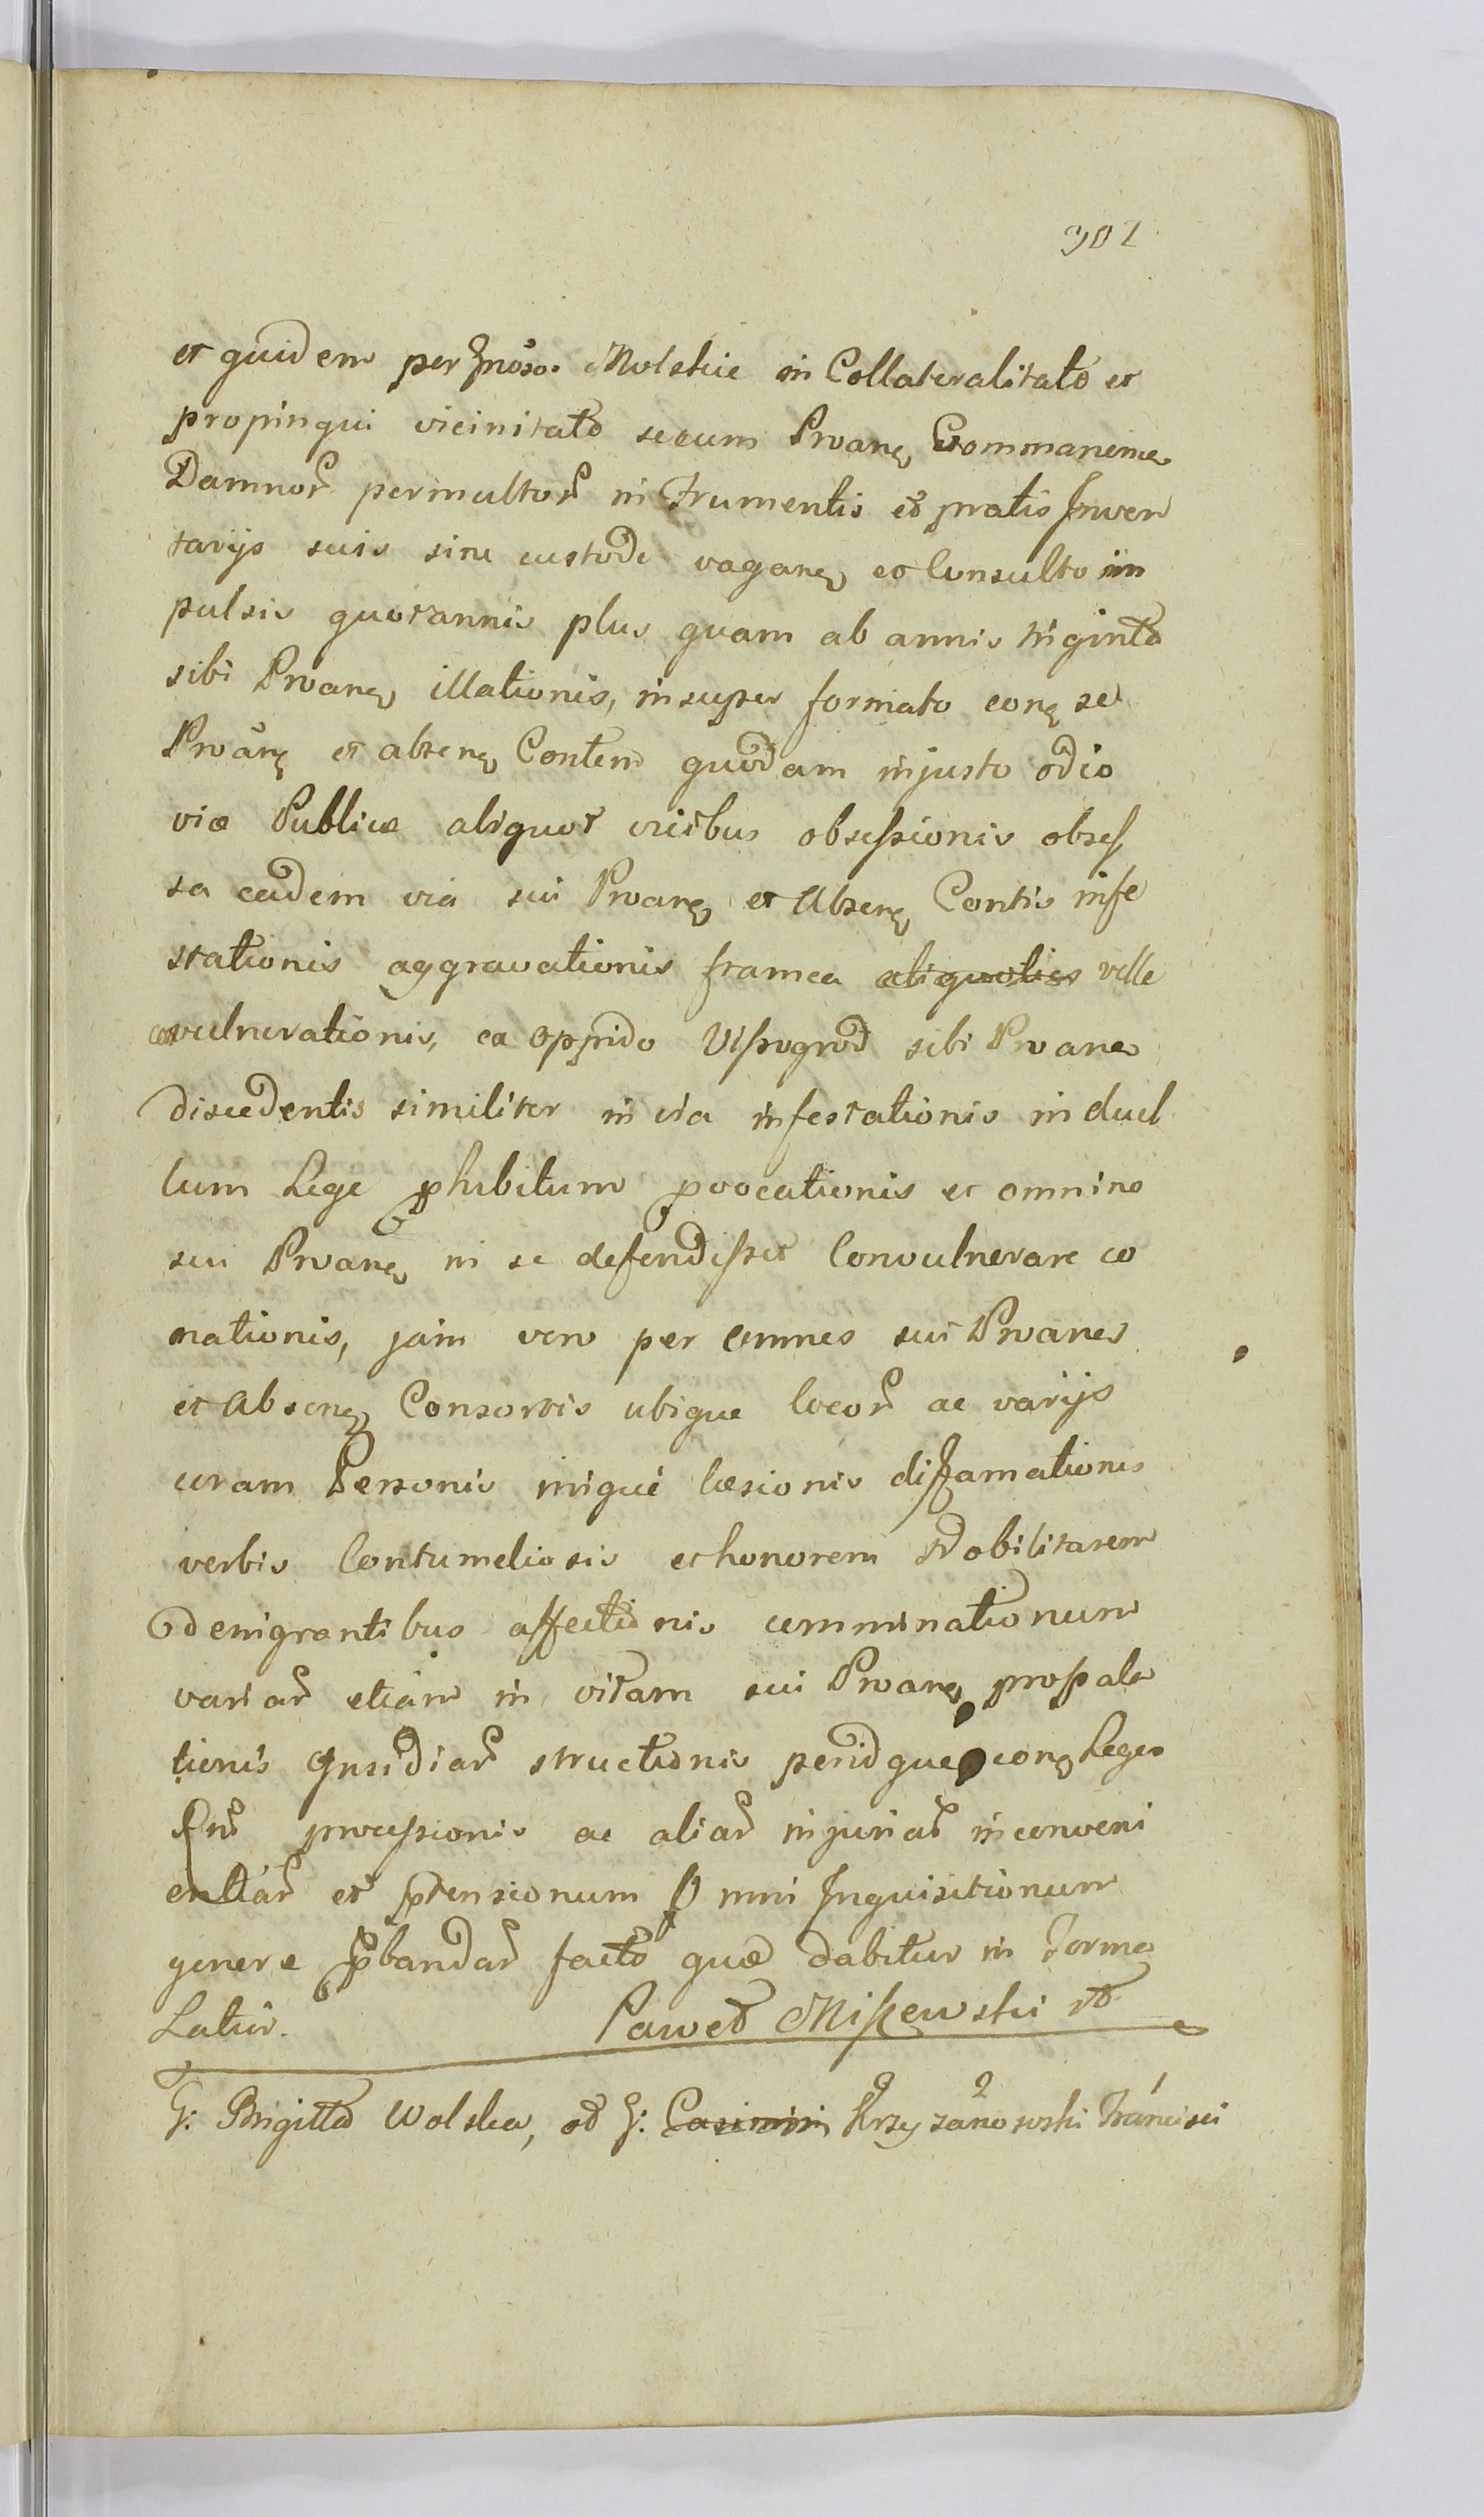 302
et quidem per Gnoso. Molskie in Collateralitate et
propinqui vicinitate secum Proane Commanene
Damnor permultor in Frumentis et pratis Inven
tarijs suis sine custode vagane et Consulto im
pulsis quotannis plus quam ab annis triginta
sibi Proane illationis, insuper formato cone se
Proane et absene Contem quodam injusto odio
viæ Publicæ aliquot vicibus obsessionis obses
sa eadem via sui Proane et Absene Contis infe
stationis aggravationis framea aliquoties velle
convulnerationis, ex oppido Vissogrod sibi Proane
discedentis similiter in via infestationis in duel
lum Lege phibitum pvocationis et omnino
sui Proane ni se defendisset Convulnerare co
nationis, jam vero per omnes sui Proanes
et Absene Consortis ubique locor ac varijs
coram Personis iniqué læsionis diffamationis
verbis Contumeliosis et honorem Nobilitarem
denigrantibus affectionis comminationum
variar etiam in vitam sui Proane propala
tionis Insidiar structionis peridque cone Leges
Rni processionis ac aliar injuriar inconveni
entiar et ptensionum Omni Inquisitionum
genere pbandar facta quæ dabitur in Forma
Latiu. Paweł Miszewski
G: Brigitta Wolska, et G: Casimiri Krzyzanowski Francisci